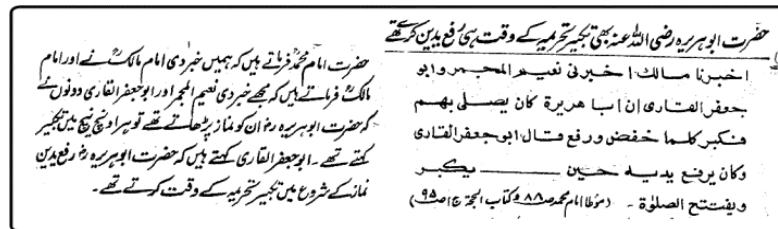 حضرت ابوہریرہ رضی اللہ عنہ بھی تکبیر تحریمہ کے وقت ہی رفع یدین کرتے تھے
اخبرنا مالك اخبرنی نعیم المجمر وابو
جعفر القاری ان ابا هریرة کان یصلی بهم
فکبر کلما خفض ورفع قال ابو جعفر القاری
وکان یرفع یدیه حین ــــــ یکبر
ویفتتح الصلوٰة ۔ (مؤطا امام محمد صـ۸۸ وکتاب الحجة ج۱ صـ۹۵)
حضرت امام محمدؒ فرماتے ہیں کہ ہمیں خبر دی امام مالکؒ نے اور امام
مالکؒ فرماتے ہیں کہ مجھے خبر دی نعیم المجمر اور ابوجعفر القاری دونوں نے
کہ حضرت ابوہریرہ رضؓ ان کو نماز پڑھاتے تھے تو ہر اونچ نیچ میں تکبیر
کہتے تھے ۔ ابوجعفر القاری کہتے ہیں کہ حضرت ابوہریرہ رضؓ رفع یدین
نماز کے شروع میں تکبیر تحریمہ کے وقت کرتے تھے ۔